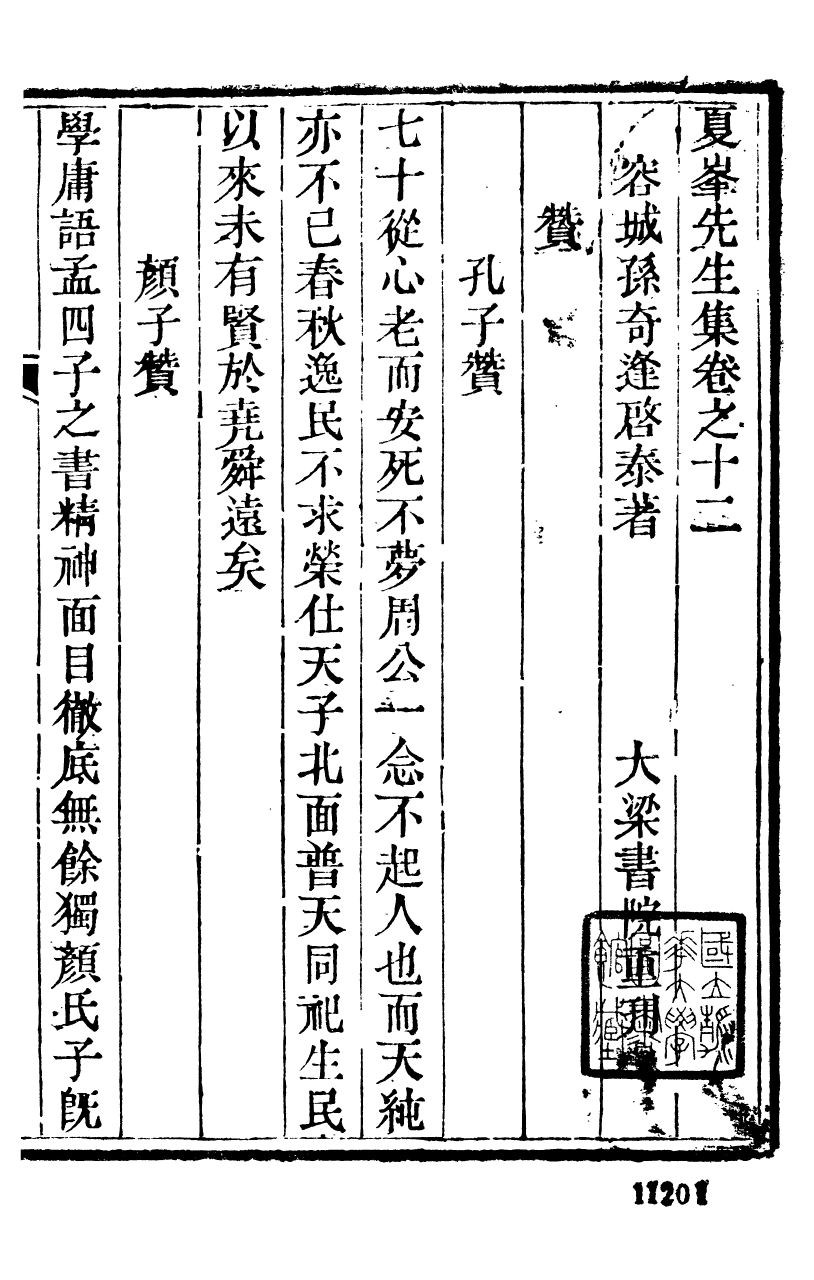 夏峯先生集卷之十二
容城孫奇逢啓泰著　大梁書院重刊
贊
孔子贊
七十從心老而安死不夢周公一念不起人也而天純
亦不已春秋逸民不求榮仕天子北面普天同祀生民
以來未有賢於堯舜遠矣
顏子贊
學庸語孟四子之書精神面目徹底無餘獨顏氏子既
國立清華大學圖書館藏
11201